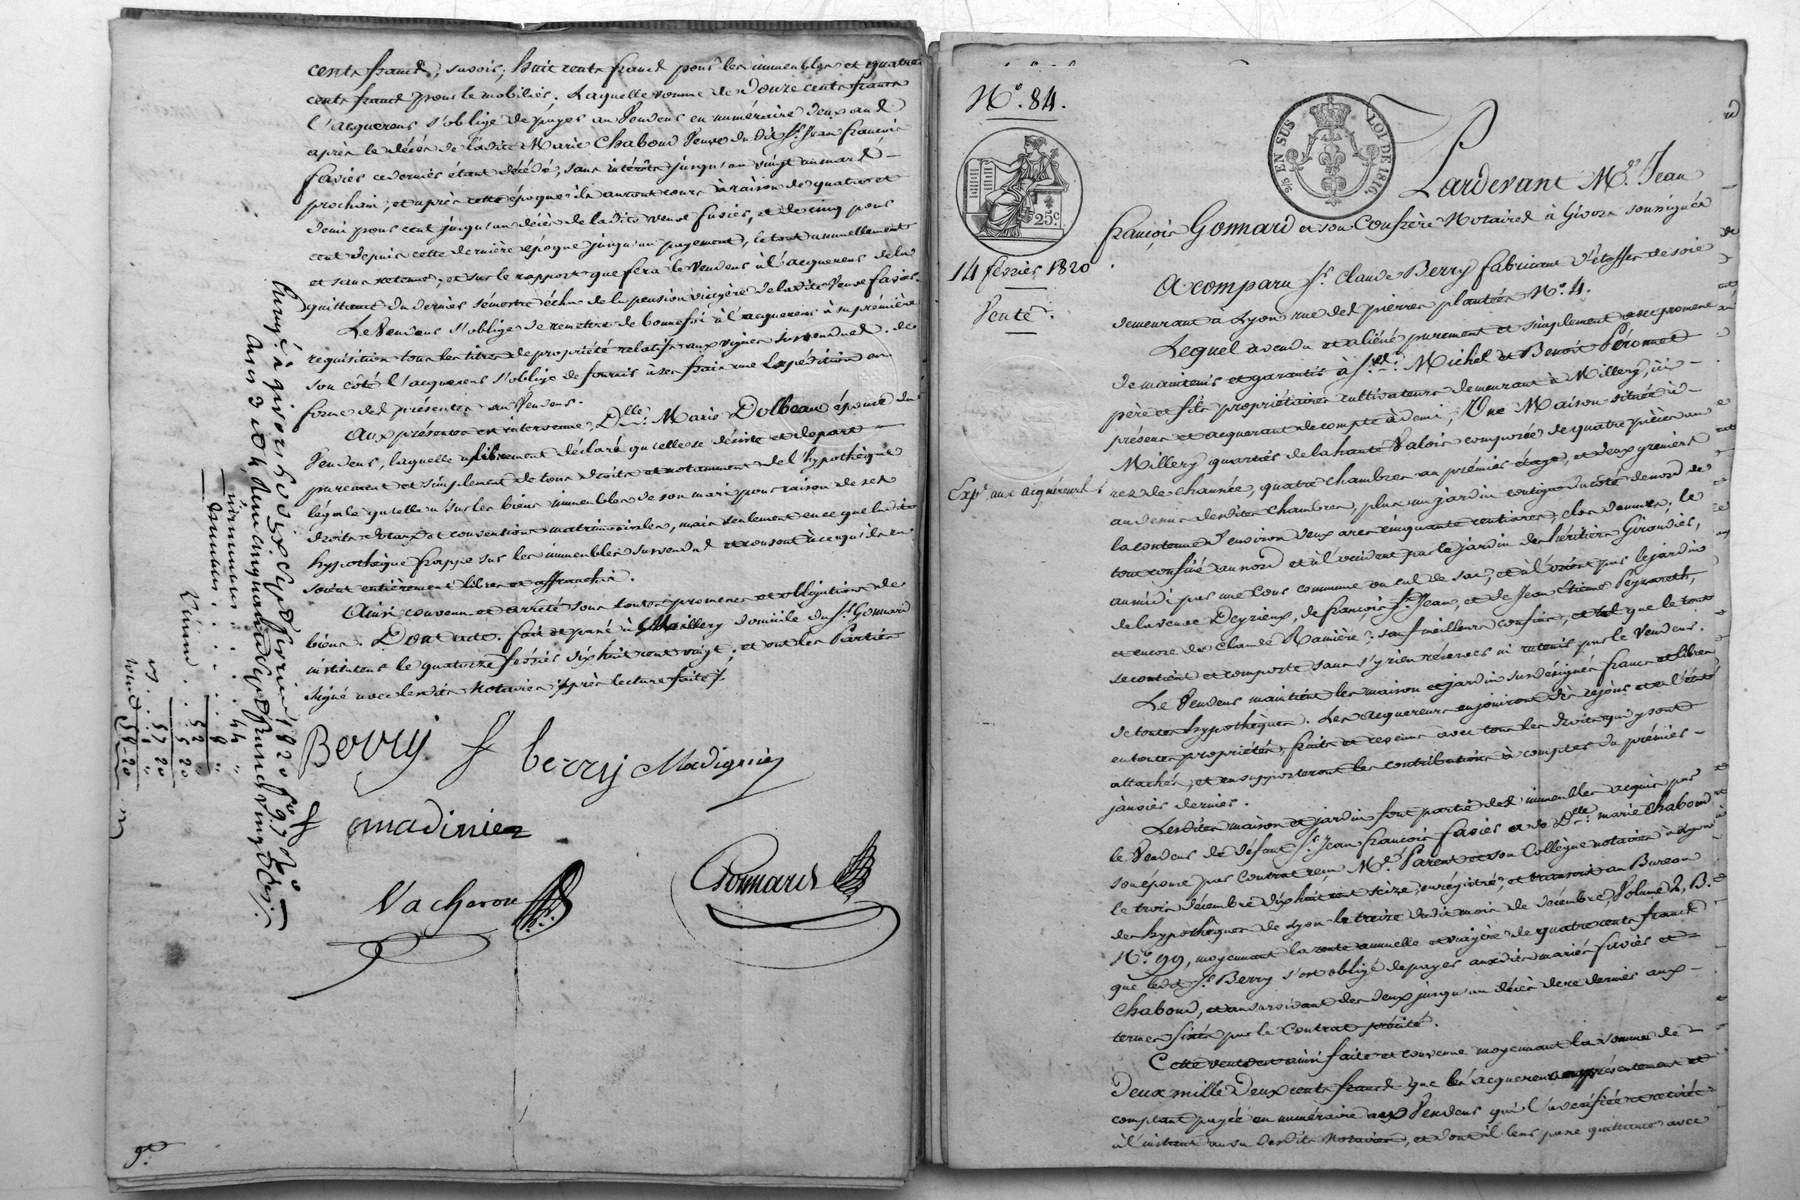 cents francs, savoir, huit cents francs pour les immeubles et quatre
cents francs pour le mobilier. Laquelle somme de Douze cents francs
l'acquereur s'oblige de payer au Vendeur en numéraire deux ans
après le décès de ladite Marie Chabond Veuve du dit Sr. Jean françois
favier ce dernier étant décédé, sans intérêts jusqu'au vingt un mars
prochain, et après cette époque ils auront cours à raison de quatre et
demi pour cent jusqu'au décès de ladite veuve favier, et de cinq pour
cent depuis cette dernière époque jusqu'au payement, le tout annuellement
et sans retenue, et sur le rapport que fera le Vendeur à l'acquereur de la
quittance du dernier sémestre échu de la pension viagère de ladite Veuve favier.
Le Vendeur s'oblige de remettre de bonne foi à l'acquereur à sa première
requisition tous les titres de propriété relatifs aux vignes survendues. de
son côté l'acquereur s'oblige de fournir à ses frais une Expédition en
forme des présentes au Vendeur.
Aux présentes est intervenue, Dlle. Marie Dolbeau épouse du
Vendeur, laquelle a librement déclaré qu'elle se désiste et départ
purement et simplement de tous droits et notamment de l'hypothèque
légale qu'elle a sur les biens immeubles de son mari pour raison de ses
droits dotaux et conventions matrimoniales, mais seulement en ce que ladite
hypothèque frappe sur les immeubles survendus et consent à ce qu'ils en
soient entièrement libres et affranchis.
Ainsi convenu et arrêté sous toutes promesses et obligations de
biens. Dont acte. fait et passé à Millery domicile du Sr. Gonnard
instituteur le quatorze février dix huit cent vingt; et ont les Parties
signé avec lesdits Notaires après lecture faite.
Berry f berry Madignier
f madinier
Vacheron
Gonnard
No. 84.
25 EN SUS
LOI DE 1816.
25c.
14 février 1820
Vente.
Expn. aux acquéreurs
Pardevant Me. Jean
françois Gonnard et son Confrère Notaires à Givors soussignés
A comparu Sr. Claude Berry fabricant d'étoffes de soie
demeurant à Lyon rue des pierres plantées No. 4.
Lequel a vendu et aliéné purement et simplement avec promesse
de maintenir et garantir à Srs. Michel et Benoit Péronnet
père et fils propriétaires cultivateurs demeurant à Millery, ici
présens et acquerant de compte à demi; Une Maison située à
Millery quartier de la haute Valois composée de quatre pièces au
rez de chaussée, quatre chambres au premier étage, et deux greniers
au dessus desdites chambres, plus un jardin contigu du côté de nord de
la contenue d'environ deux ares cinquante centiares, clos de murs; le
tout confiné au nord et à l'occident par le jardin des héritiers Girondier,
au midi par une Cour commune ou cul de sac, et à l'orient par le jardin
de la veuve Deyrieux, de françois St. Jean, et de Jean Etienne Peyzareth,
et encore de Claude Ramière; sauf meilleurs confins, et tel que le tout
se contient et comporte sans s'y rien réserver ni retenir par le Vendeur.
Le Vendeur maintient les maison et jardin sus désignés francs et libres
de toutes hypothèques. Les acquereurs en jouiront dès ce jour et à l'avenir
en toute propriété, fruits et revenus avec tous les droits qui y sont
attachés, et en supporteront les contributions à compter du premier
janvier dernier.
Lesdites maison et jardin font partie des immeubles acquis par
le Vendeur de défunt Sr. Jean françois favier et de Dlle. marie Chabond
son épouse par Contrat reçu Me. Parent et son Collègue notaires à Lyon
le trois décembre dix huit cent seize, enregistré, et transcrit au Bureau
des hypothèques de Lyon le treize dudit mois de décembre, Volume 2, B.
No. 99, moyennant la rente annuelle et viagère de quatre cents francs
que ledit Sr. Berry s'est obligé de payer auxdits mariés favier et
Chabond, et au survivant des deux jusqu'au décès de ce dernier aux
termes fixés par le Contrat précité.
Cette vente est ainsi faite et convenue moyennant la somme de
Deux mille deux cents francs que les acquereurs ont présentement et
comptant payée en numéraire au Vendeur qui l'a vérifiée et retirée
à l'instant au vu desdits Notaires, et dont il leur passe quittance avec